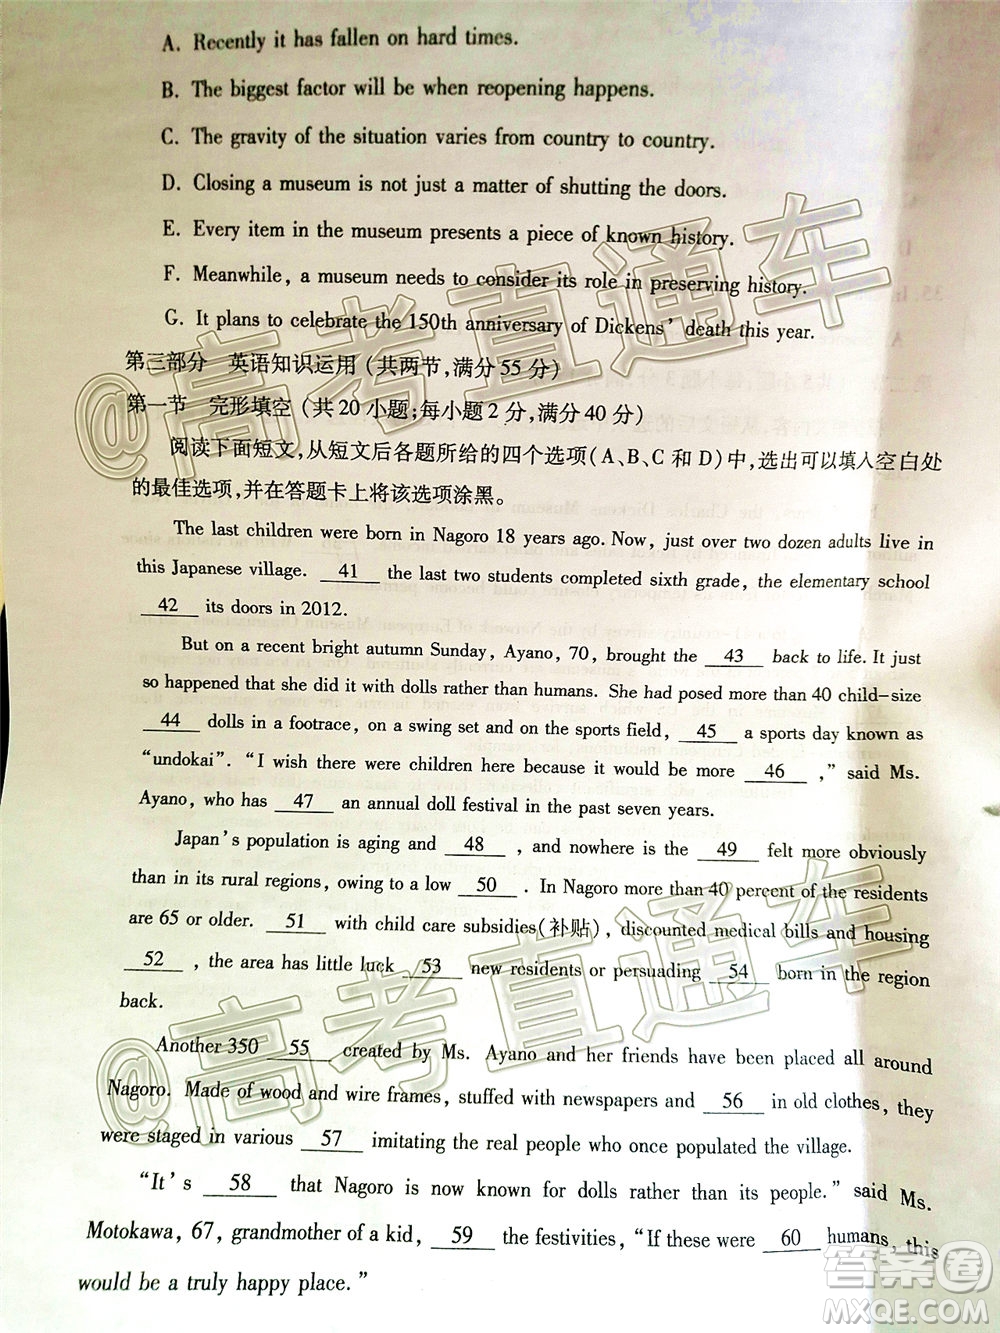 A. Recently it has fallen on hard times.
B. The biggest factor will be when reopening happens.
C. The gravity of the situation varies from country to country.
D. Closing a museum is not just a matter of shutting the doors.
E. Every item in the museum presents a piece of known history.
F. Meanwhile, a museum needs to consider its role in preserving history.
G. It plans to celebrate the 150th anniversary of Dickens' death this year.
第三部分 英语知识运用(共两节,满分55分)
第一节 完形填空(共20小题;每小题2分,满分40分)
阅读下面短文,从短文后各题所给的四个选项(A、B、C和D)中,选出可以填入空白处
的最佳选项,并在答题卡上将该选项涂黑。
The last children were born in Nagoro 18 years ago. Now, just over two dozen adults live in
this Japanese village. 41 the last two students completed sixth grade, the elementary school
42 its doors in 2012.
But on a recent bright autumn Sunday, Ayano, 70, brought the 43 back to life. It just
so happened that she did it with dolls rather than humans. She had posed more than 40 child-size
44 dolls in a footrace, on a swing set and on the sports field, 45 a sports day known as
"undokai". "I wish there were children here because it would be more 46 ," said Ms.
Ayano, who has 47 an annual doll festival in the past seven years.
Japan's population is aging and 48 , and nowhere is the 49 felt more obviously
than in its rural regions, owing to a low 50 . In Nagoro more than 40 percent of the residents
are 65 or older. 51 with child care subsidies(补贴), discounted medical bills and housing
52 , the area has little luck 53 new residents or persuading 54 born in the region
back.
Another 350 55 created by Ms. Ayano and her friends have been placed all around
Nagoro. Made of wood and wire frames, stuffed with newspapers and 56 in old clothes, they
were staged in various 57 imitating the real people who once populated the village.
"It's 58 that Nagoro is now known for dolls rather than its people." said Ms.
Motokawa, 67, grandmother of a kid, 59 the festivities, "If these were 60 humans, this
would be a truly happy place."
@高考直通车
@高考直通车
答案圈
MXQE.COM